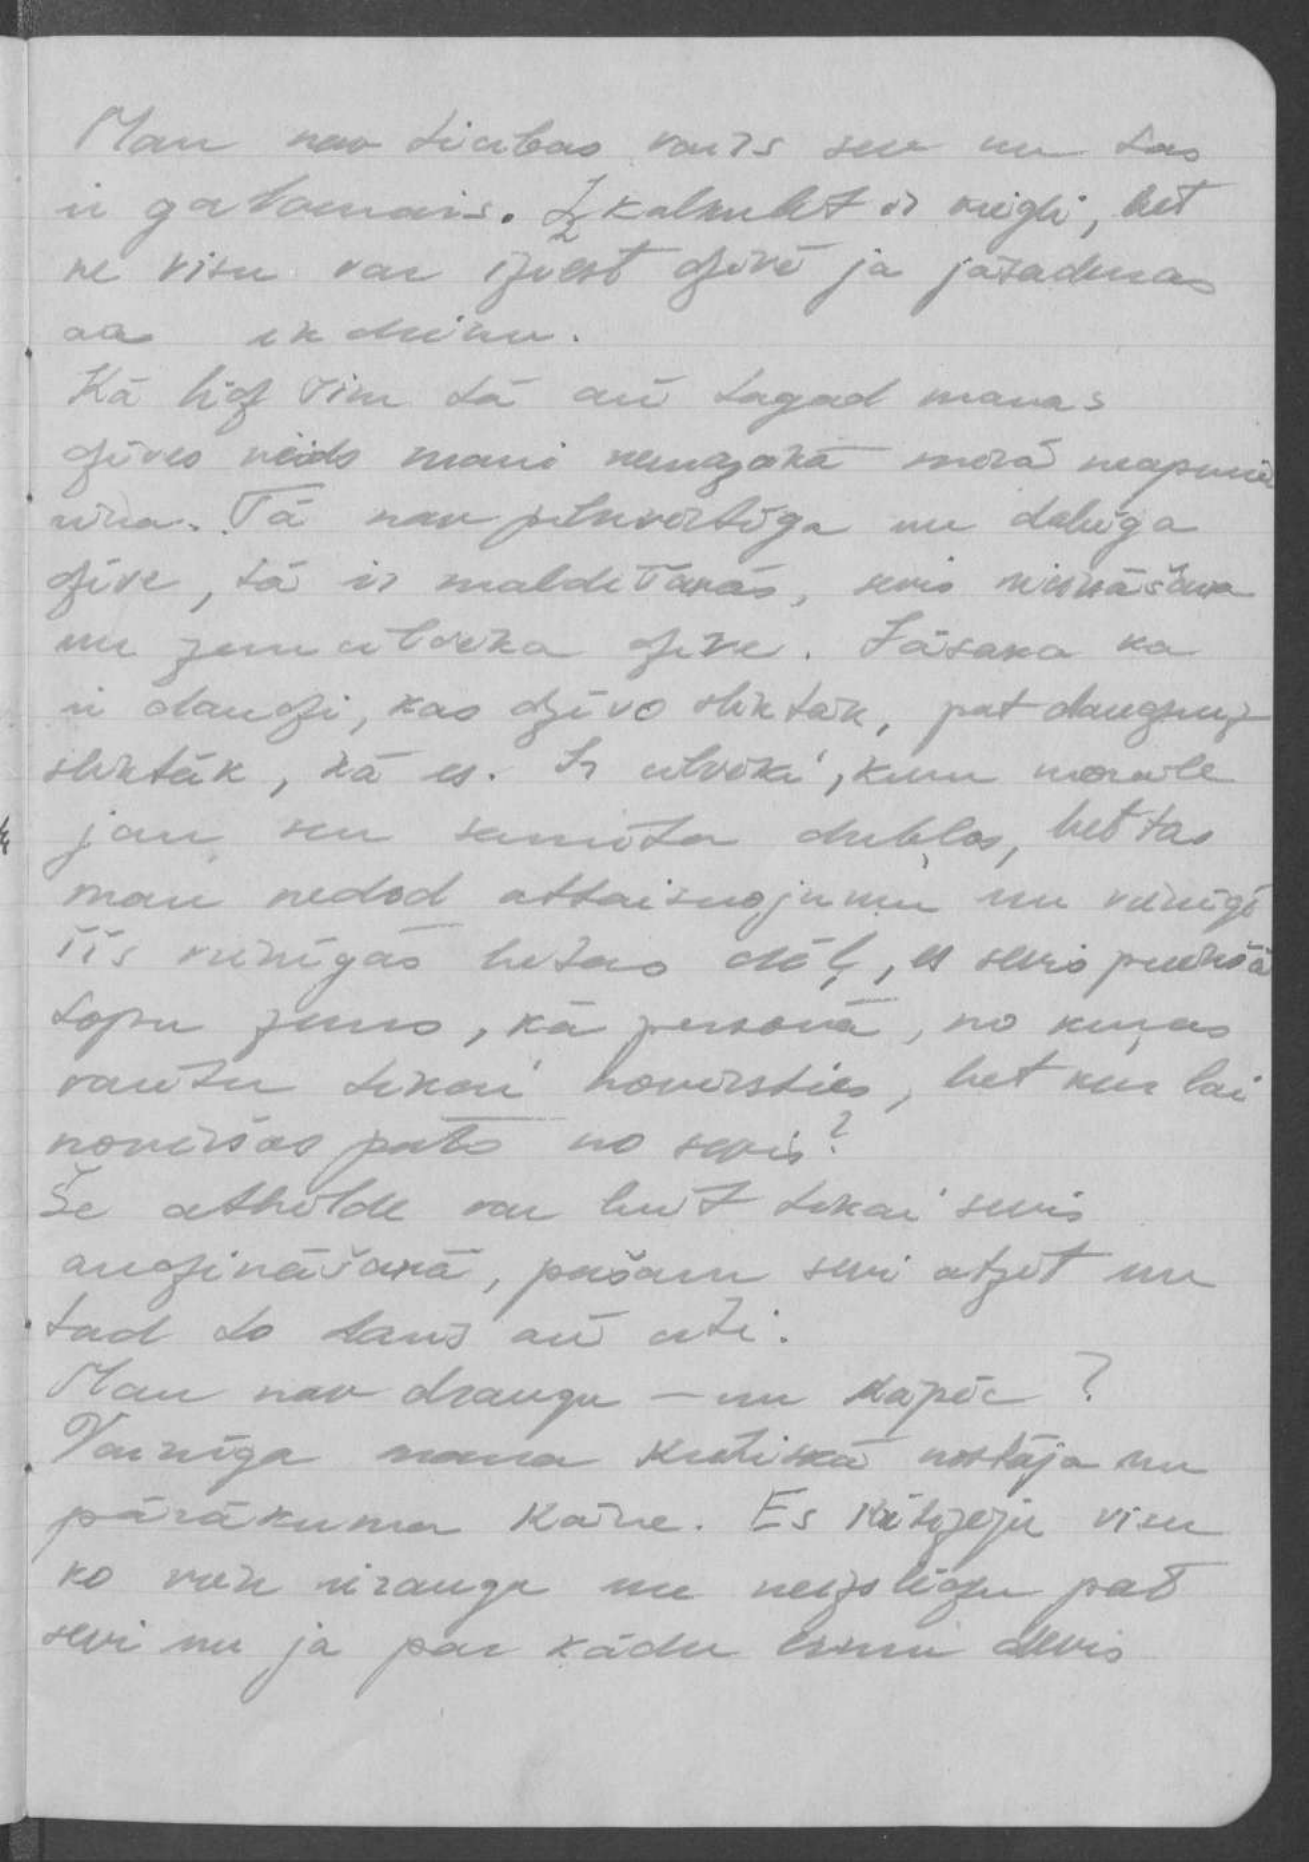 Man nav ticības vairs sev un tas
ir galvenais. Izkalkulēt ir viegli, bet
ne visu var izvest dzīvē ja jāsaduras
ar ikdienu.
Kā līdz šim tā arī tagad manas
dzīves veids mani nemazākā mērā neapmie
rina. Tā nav pilnvērtīga un derīga
dzīve, tā ir maldīšanās, sevis nicināšana
un zem cilvēka dzīve. Jāsaka ka
ir daudzi, kas dzīvo sliktāk, pat daudzreiz
sliktāk, kā es. Ir cilvēki, kuru morāle
jau sen samīta dubļos, bet tas
man nedod attaisnojumu un vienīgi
šīs vienīgās lietas dēļ, es sevis priekšā
topu zems, kā persona, no kuŗas
vairītu tikai novērsties, bet kur lai
novēršas pats no sevis?
Še atbilde var būt tikai sevis
audzināšanā, pašam sevi atzīt un
tad to ļaus arī citi.
Man nav draugu — un kāpēc?
Vainīga mana kritiskā nostāja un
pārākuma kāre. Es kritizēju visu
ko vien ieraugu un neizslēdzu pat
sevi un ja par kādu esmu devis